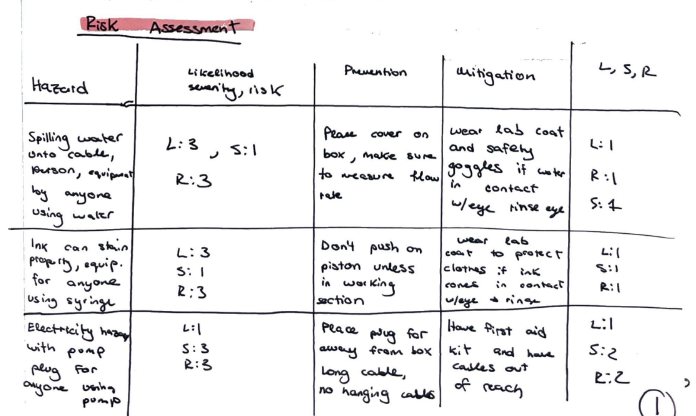 Risk Assessment
Hazard
Likelihood
severity, risk
Prevention
Mitigation
L, S, R
Spilling water
unto cable,
person, equipment
by anyone
using water
L:3 , S:1
R:3
Place cover on
box, make sure
to measure flow
rate
wear lab coat
and safety
goggles if water
in contact
w/eye rinse eye
L:1
R:1
S:1
Ink can stain
property, equip.
for anyone
using syringe
L:3
S:1
R:3
Don't push on
piston unless
in working
section
wear lab
coat to protect
clothes if ink
comes in contact
w/eye → rinse
L:1
S:1
R:1
Electricity hazard
with pump
plug for
anyone using
pump
L:1
S:3
R:3
Place plug far
away from box
Long cable,
no hanging cables
Have first aid
kit and have
cables out
of reach
L:1
S:2
R:2
1